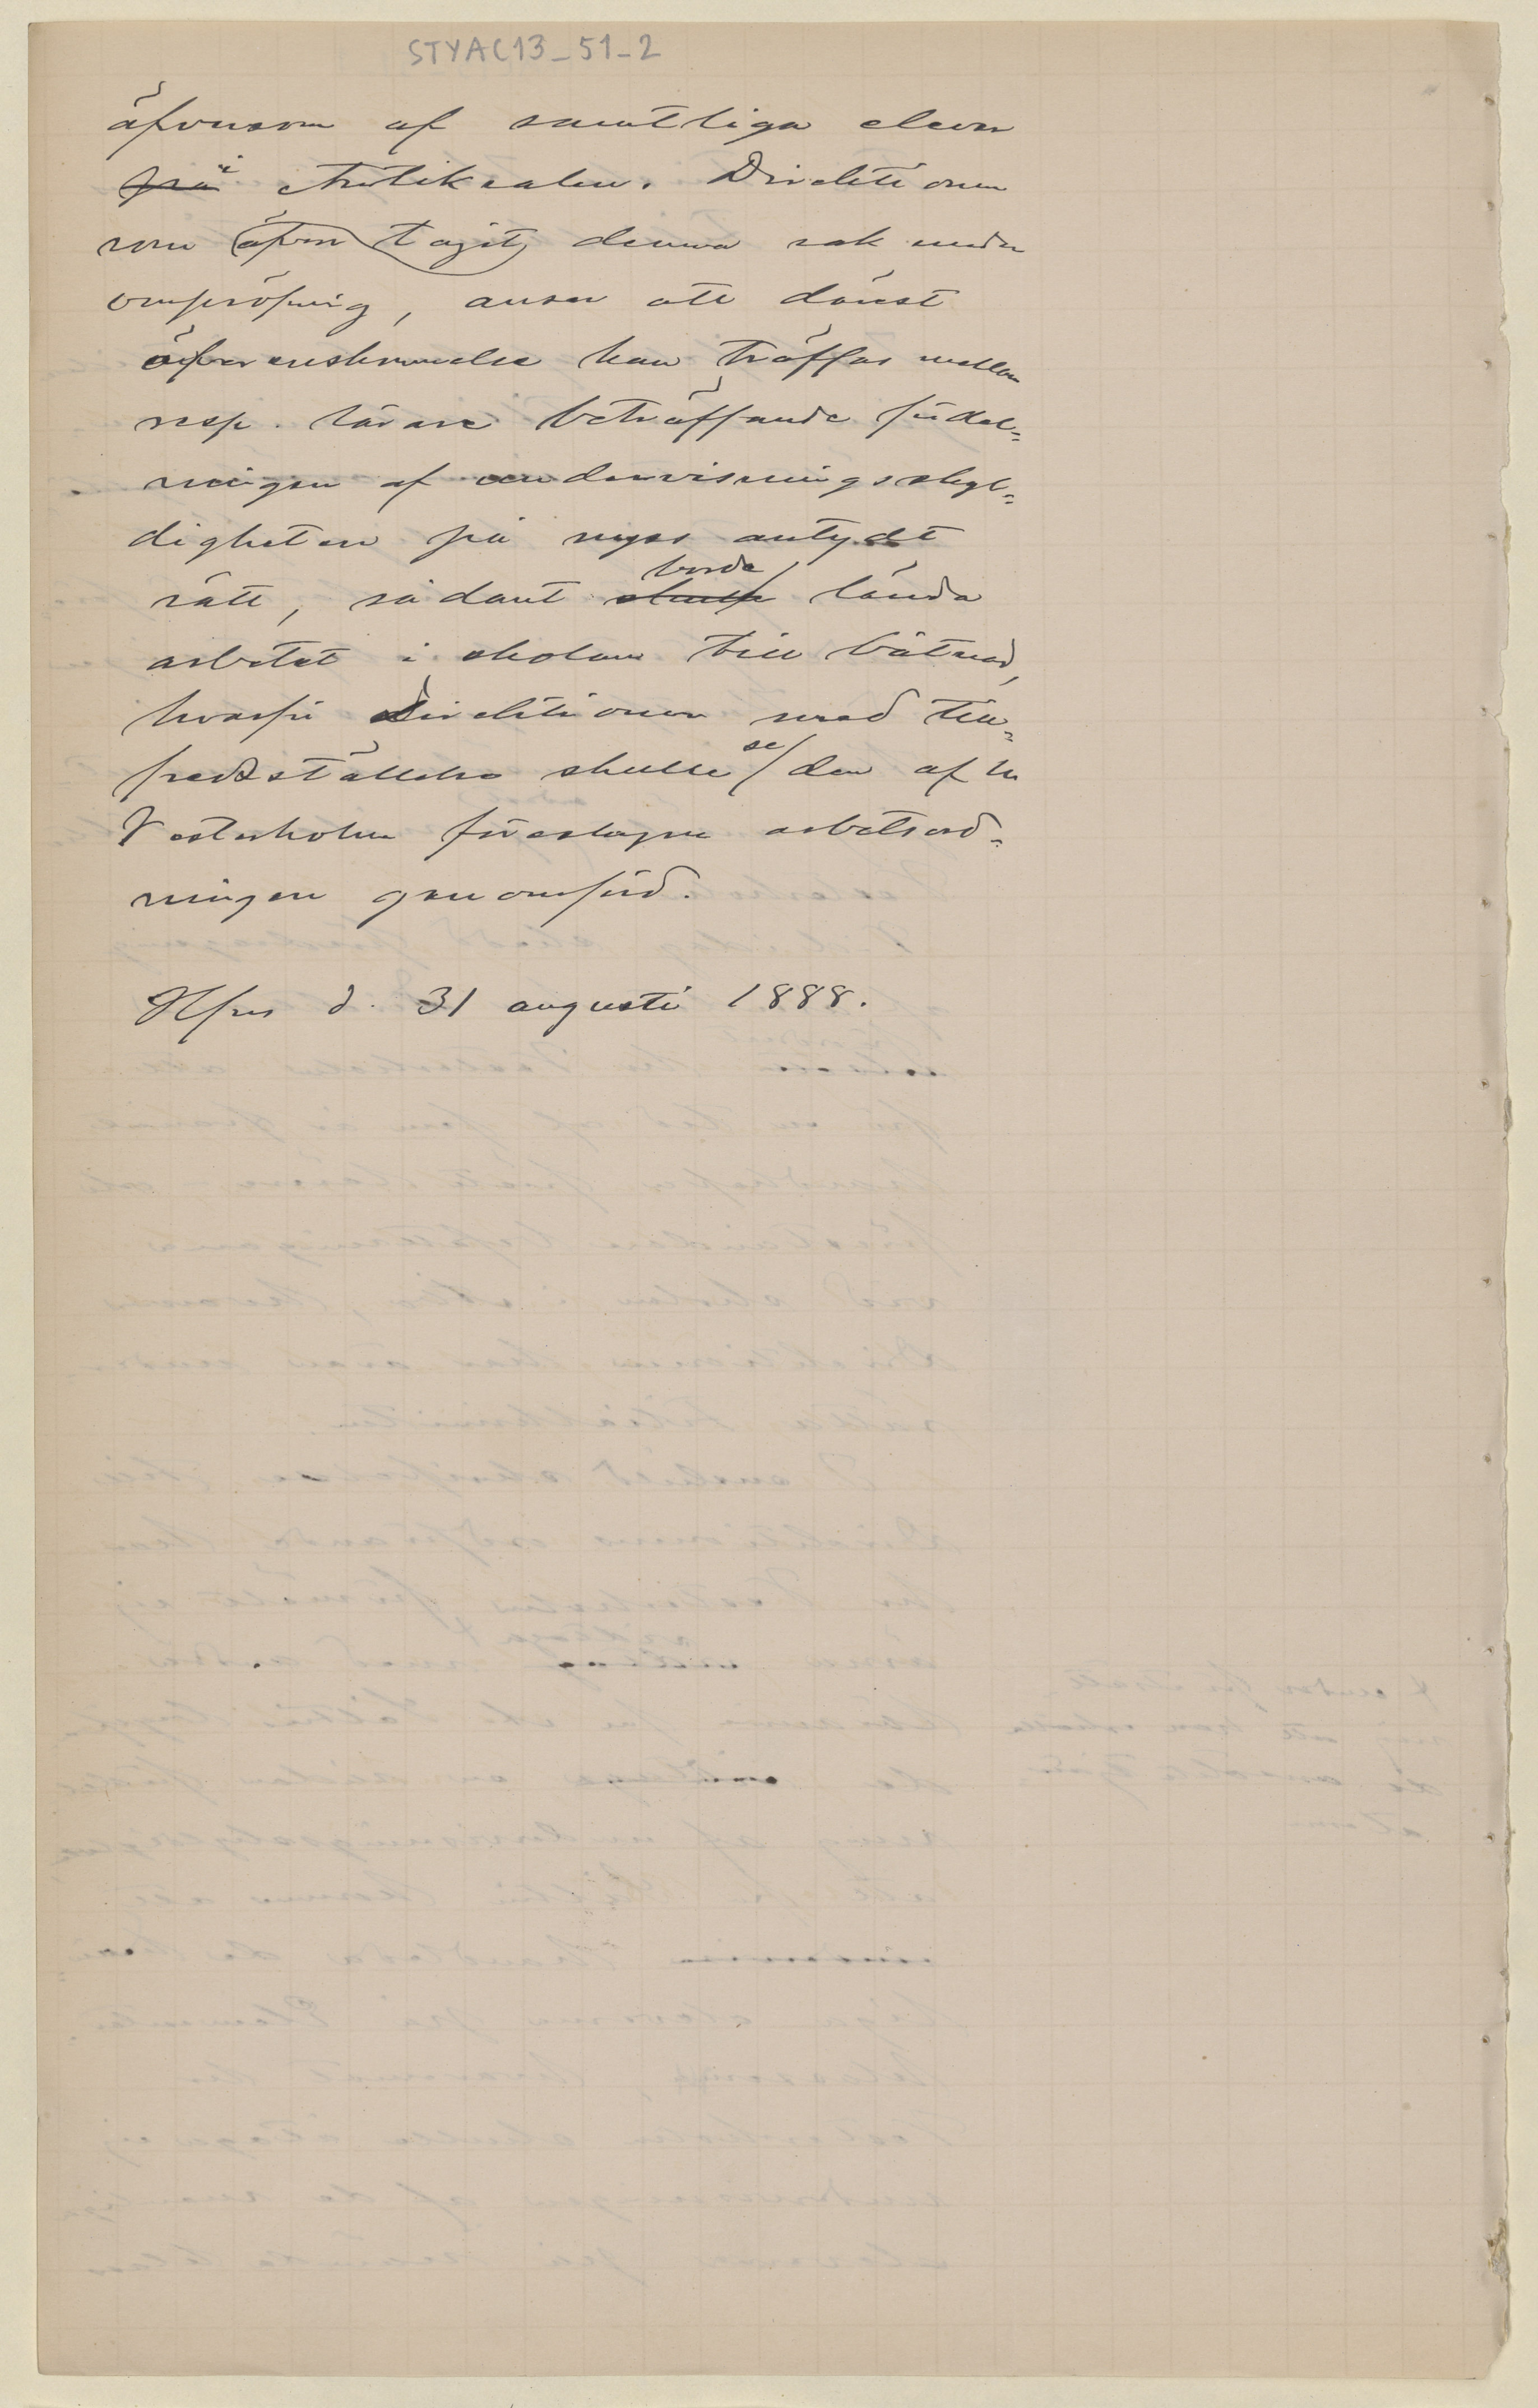 STYAC13_51_2
äfvensom af samtliga elever
på i Antiksalen. Direktionen
som äfven tagit denna sak under
ompröfning, anser att därest
öfverenskommelse kan träffas mellan
resp. lärare beträffande fördel=
ningen af undervisningsskyl=
digheten på nyss antydt
borde
sätt, sådant skulle lända
arbetet i skolan till båtnad,
hvarför Direktionen med till=
se
fredsställelse skulle den af hr
Vesterholm föreslagna arbetsord=
ningen genomförd.
Hfors d. 31 augusti 1888.